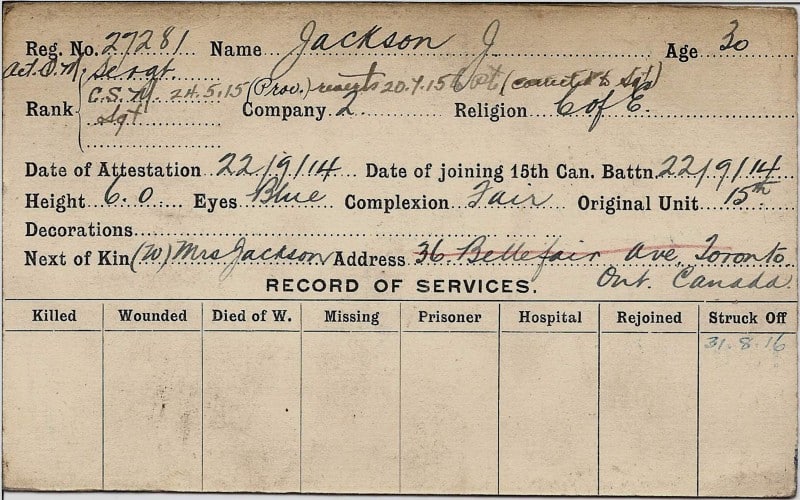 Reg. No. 27281 Name Jackson J Age 30
Act. C.S.M. Sergt.
C.S.M. 24.5.15 (Prov.) reverts 20.7.15 (corrected to Sgt)
Rank Sgt Company 2 Religion C of E.
Date of Attestation 22/9/14 Date of joining 15th Can. Battn. 22/9/14
Height 6.0 Eyes Blue Complexion Fair Original Unit 15th
Decorations
Next of Kin (W) Mrs Jackson Address 36 Bellefair Ave. Toronto.
Ont. Canada
RECORD OF SERVICES.
Killed Wounded Died of W. Missing Prisoner Hospital Rejoined Struck Off
31.8.16